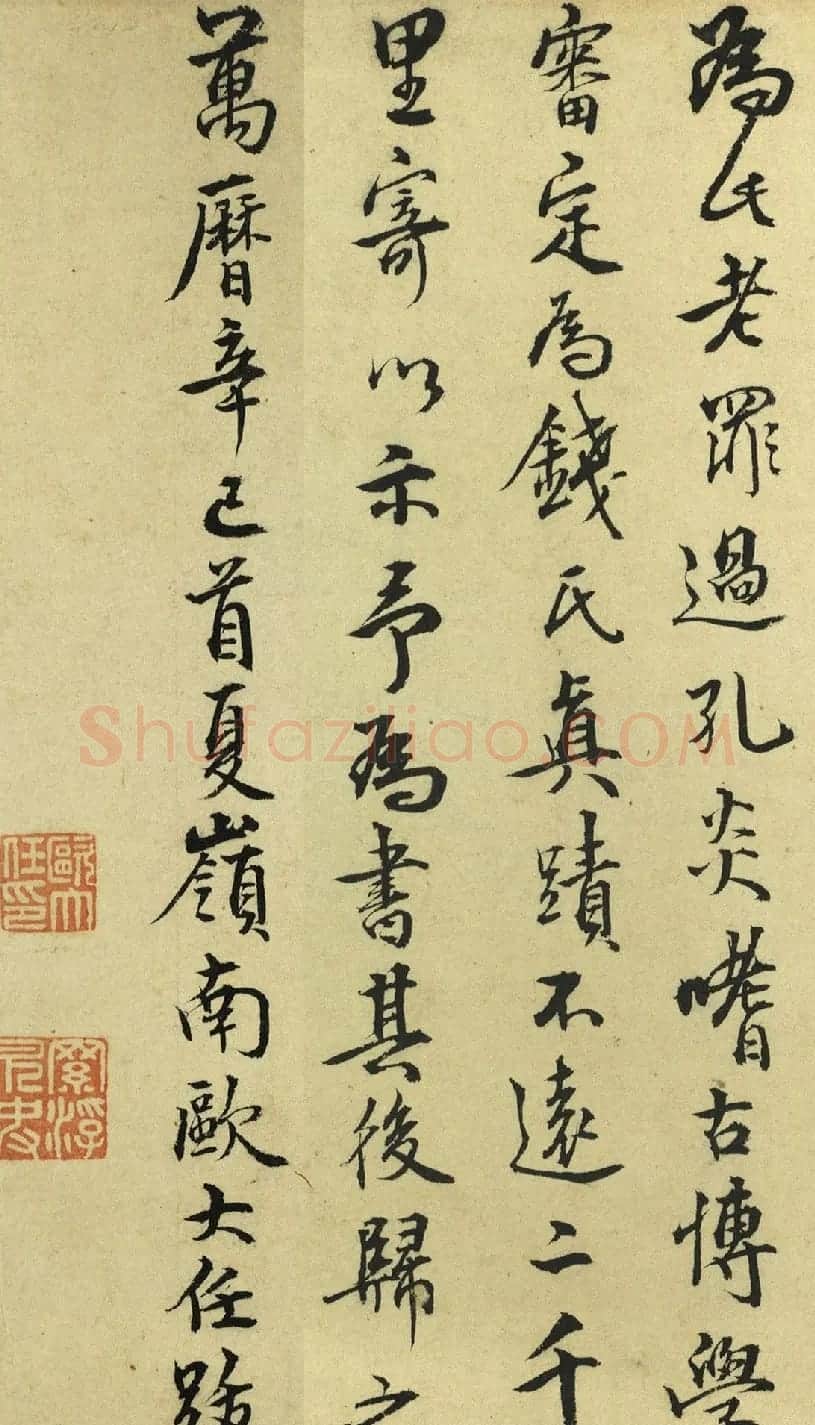 為氏老罪過孔炎嗜古博學
審定為錢氏真蹟不遠二千
里寄以示予為書其後歸之
萬曆辛巳首夏嶺南歐大任跋
歐大任印
Shufaziliao.COM